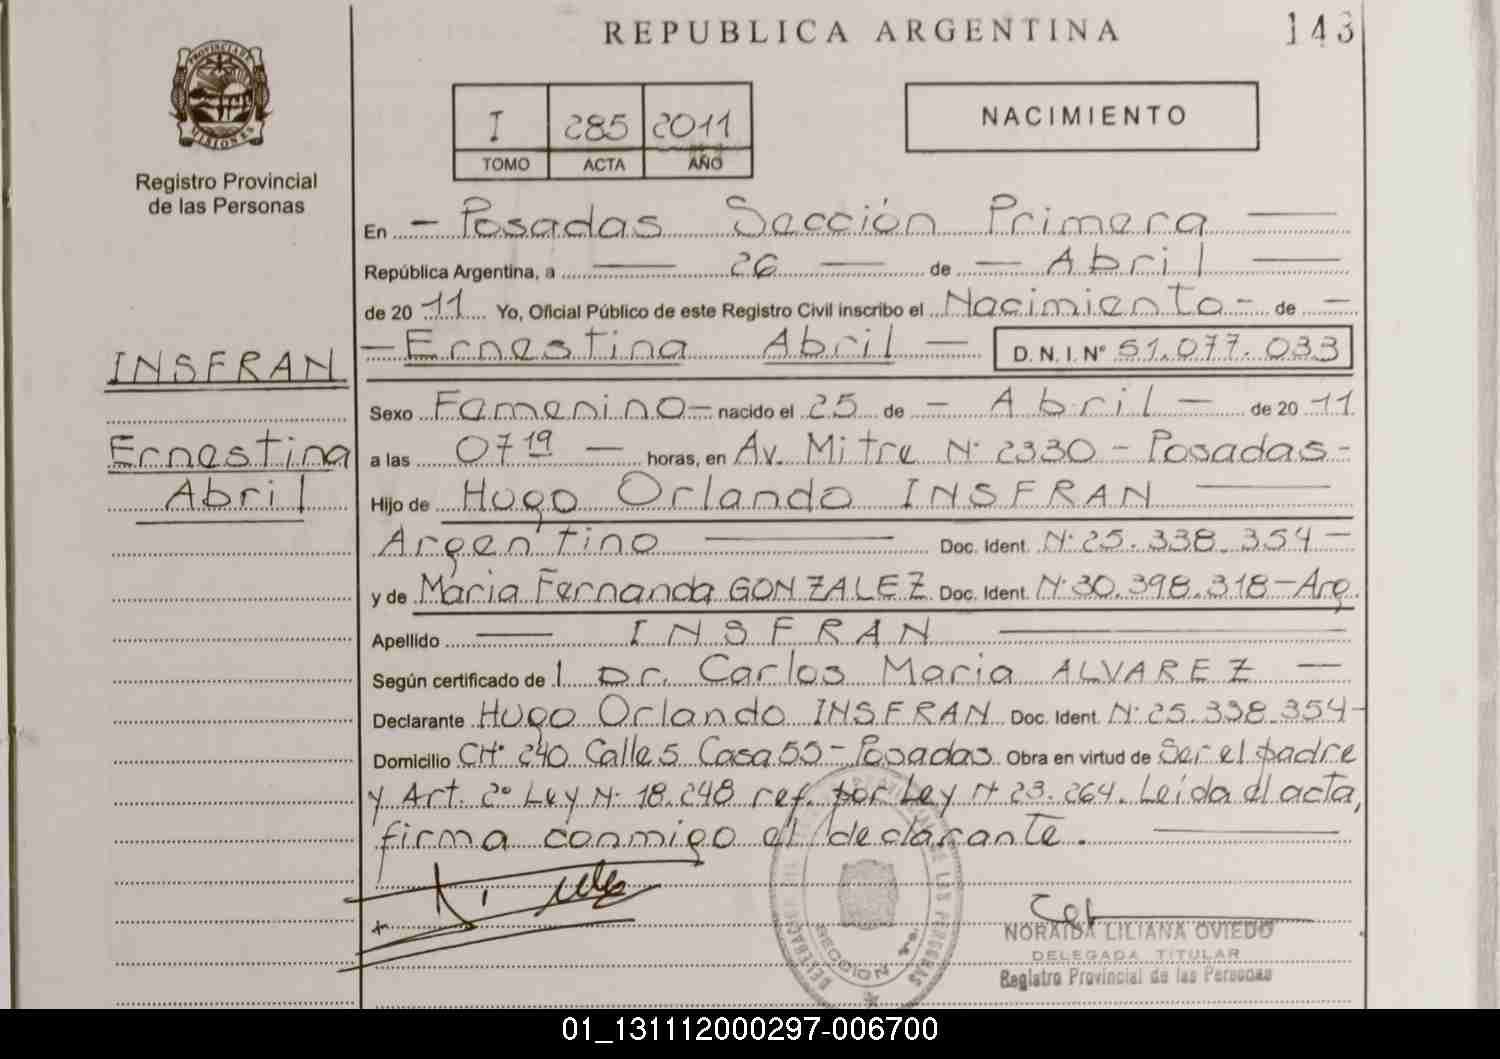 REPUBLICA ARGENTINA
143
PROVINCIA DE
MISIONES
Registro Provincial
de las Personas
I 285 2011
TOMO ACTA AÑO
NACIMIENTO
En - Posadas Sección Primera
República Argentina, a 26 de - Abril
de 20 11 Yo, Oficial Público de este Registro Civil inscribo el Nacimiento - de -
- Ernestina Abril - D.N.I.Nº 51.077.033
INSFRAN
Ernestina
Abril
Sexo Femenino - nacido el 25 de - Abril - de 20 11
a las 07 19 - horas, en Av. Mitre Nº 2330 - Posadas -
Hijo de Hugo Orlando INSFRAN
Argentino Doc. Ident. Nº 25.338.354 -
y de Maria Fernanda GONZALEZ Doc. Ident. Nº 30.398.318 - Arg.
Apellido INSFRAN
Según certificado de l Dr. Carlos Maria ALVAREZ -
Declarante Hugo Orlando INSFRAN Doc. Ident. Nº 25.338.354 -
Domicilio CHº 240 Calle 5 Casa 55 - Posadas Obra en virtud de Ser el padre
y Art. 2º Ley Nº 18.248 ref. por Ley Nº 23.264. Leída el acta,
firma conmigo el declarante.
SECCION 1ª
NORAIDA LILIANA OVIEDO
DELEGADA TITULAR
Registro Provincial de las Personas
01_131112000297-006700